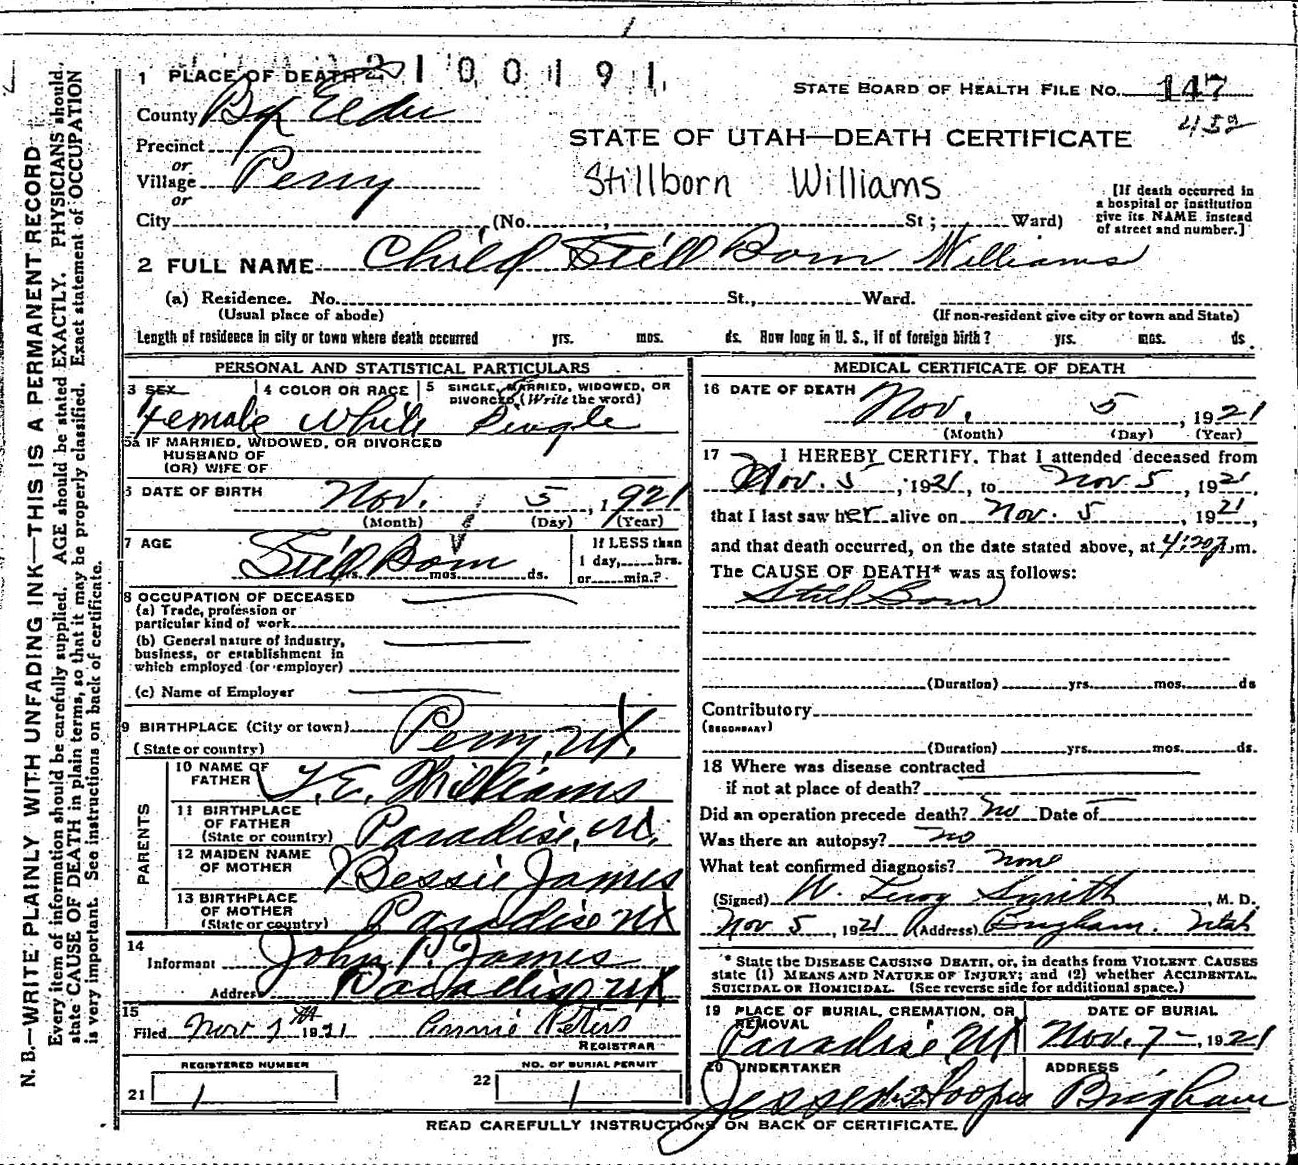 N. B.—WRITE PLAINLY WITH UNFADING INK—THIS IS A PERMANENT RECORD
Every item of information should be carefully supplied. AGE should be stated EXACTLY. PHYSICIANS should
state CAUSE OF DEATH in plain terms, so that it may be properly classified. Exact statement of OCCUPATION
is very important. See instructions on back of certificate.
2100191
1 PLACE OF DEATH
STATE BOARD OF HEALTH FILE NO. 147
452
County Box Elder
STATE OF UTAH—DEATH CERTIFICATE
Precinct
or
Village Perry
or
Stillborn Williams
[If death occurred in
a hospital or institution
give its NAME instead
of street and number.]
City (No. , St; Ward)
2 FULL NAME Child Still Born Williams
(a) Residence. No. St., Ward.
(Usual place of abode) (If non-resident give city or town and State)
Length of residence in city or town where death occurred yrs. mos. ds. How long in U. S., if of foreign birth? yrs. mos. ds.
PERSONAL AND STATISTICAL PARTICULARS
3 SEX 4 COLOR OR RACE 5 SINGLE, MARRIED, WIDOWED, OR
DIVORCED, (Write the word)
Female White Single
5a IF MARRIED, WIDOWED, OR DIVORCED
HUSBAND OF
(OR) WIFE OF
6 DATE OF BIRTH Nov. 5, 1921
(Month) (Day) (Year)
7 AGE Still Born
yrs. mos. ds.
If LESS than
1 day, hrs.
or min.?
8 OCCUPATION OF DECEASED
(a) Trade, profession or
particular kind of work
(b) General nature of industry,
business, or establishment in
which employed (or employer)
(c) Name of Employer
9 BIRTHPLACE (City or town) Perry, Ut.
(State or country)
PARENTS
10 NAME OF
FATHER T. E. Williams
11 BIRTHPLACE
OF FATHER
(State or country) Paradise, Ut.
12 MAIDEN NAME
OF MOTHER Bessie James
13 BIRTHPLACE
OF MOTHER
(State or country) Paradise Ut
14
Informant John P. James
Address Paradise, Ut
15
Filed Nov 7th 1921 Annie Peters
REGISTRAR
REGISTERED NUMBER NO. OF BURIAL PERMIT
21 1 22 1
MEDICAL CERTIFICATE OF DEATH
16 DATE OF DEATH
Nov. 5, 1921
(Month) (Day) (Year)
17 I HEREBY CERTIFY, That I attended deceased from
Nov. 5, 1921, to Nov 5, 1921,
that I last saw her alive on Nov. 5, 1921,
and that death occurred, on the date stated above, at 4:20 m.
The CAUSE OF DEATH* was as follows:
Still Born
(Duration) yrs. mos. ds
Contributory
(SECONDARY)
(Duration) yrs. mos. ds.
18 Where was disease contracted
if not at place of death?
Did an operation precede death? no Date of
Was there an autopsy? no
What test confirmed diagnosis? none
(Signed) W. Leroy Smith, M. D.
Nov 5, 1921 (Address) Brigham, Utah
* State the DISEASE CAUSING DEATH, or, in deaths from VIOLENT CAUSES
state (1) MEANS AND NATURE OF INJURY; and (2) whether ACCIDENTAL,
SUICIDAL OR HOMICIDAL. (See reverse side for additional space.)
19 PLACE OF BURIAL, CREMATION, OR
REMOVAL
DATE OF BURIAL
Paradise Ut Nov. 7—, 1921
20 UNDERTAKER ADDRESS
Brigham
READ CAREFULLY INSTRUCTIONS ON BACK OF CERTIFICATE.